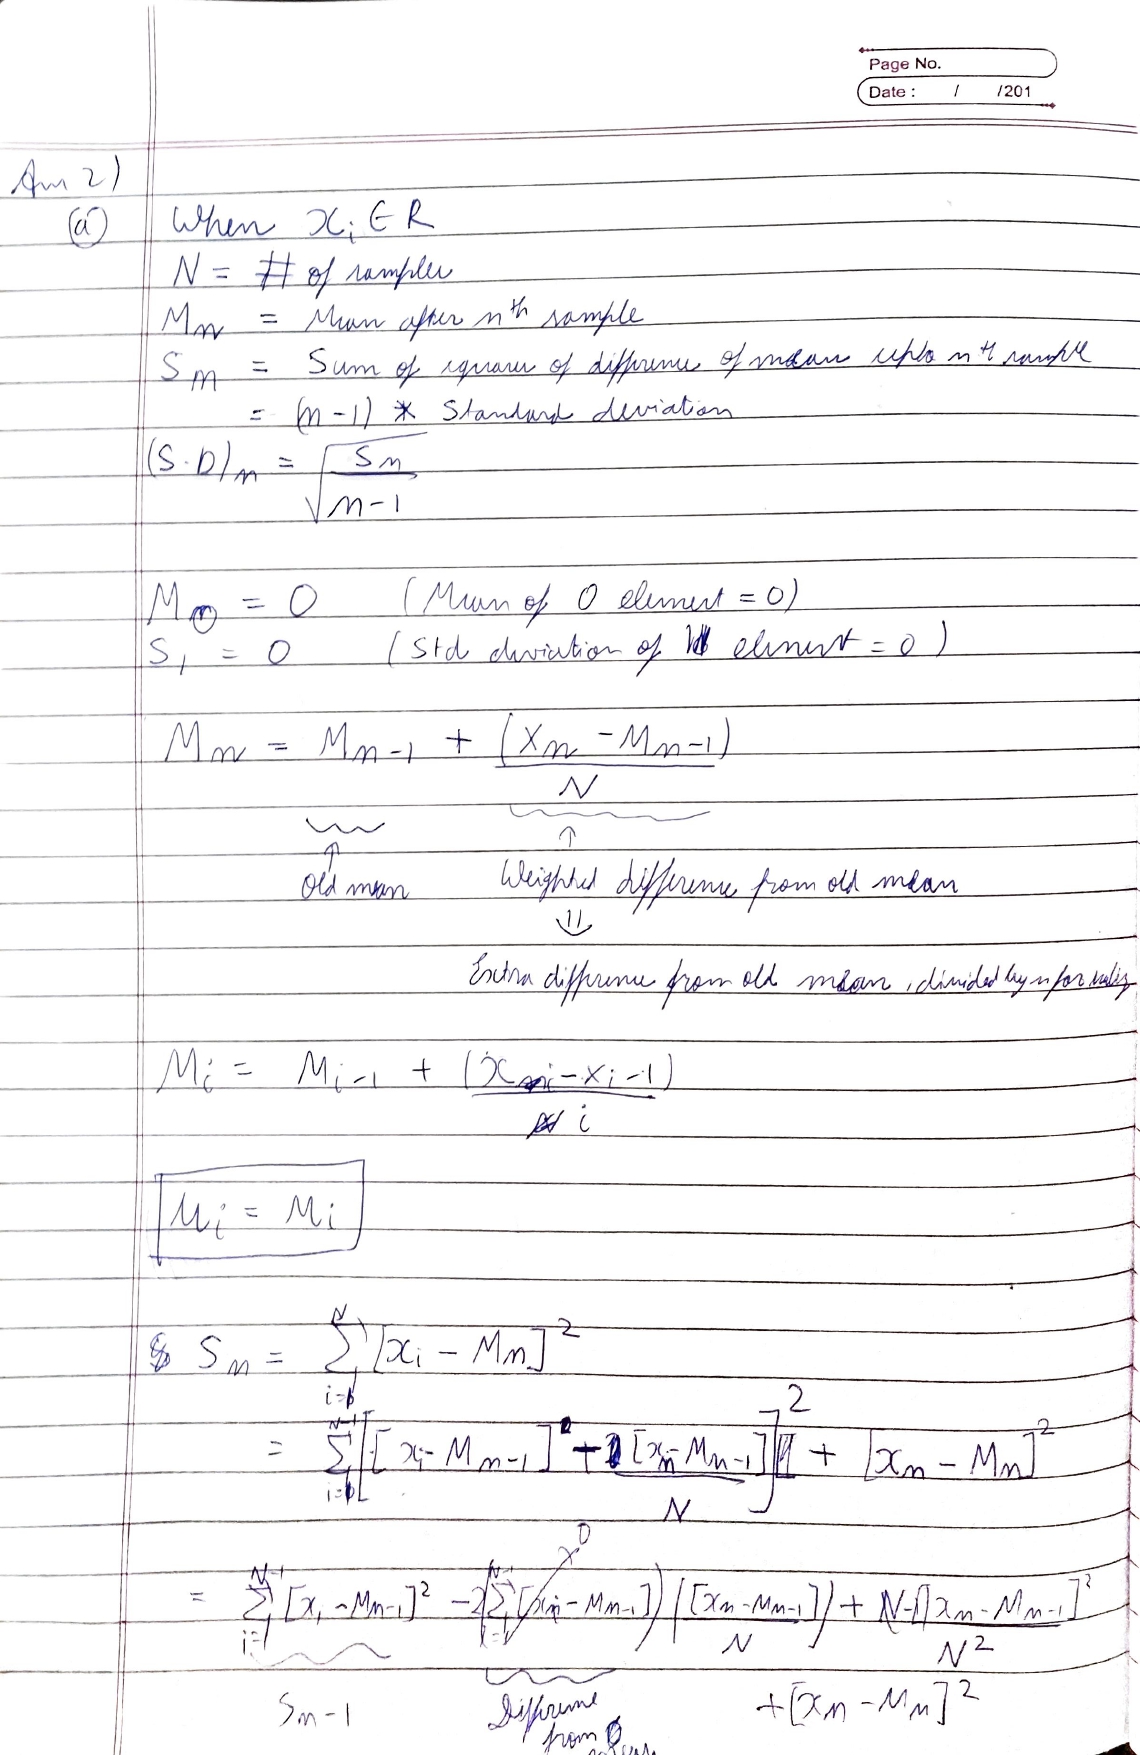 Page No.
Date : / /201
Ans 2)
(a) When xᵢ ∈ R
N = # of samples
Mₙ = Mean after nᵗʰ sample
Sₙ = Sum of squares of difference of mean upto nᵗʰ sample
= (n-1) * Standard deviation
(S.D)ₙ = √(Sₙ / n-1)
M₀ = 0 (Mean of 0 element = 0)
S₁ = 0 (Std deviation of 1 element = 0)
Mₙ = Mₙ₋₁ + (xₙ - Mₙ₋₁) / N
↑ ↑
Old mean Weighted difference from old mean
⇓
Extra difference from old mean, divided by n for
Mᵢ = Mᵢ₋₁ + (xᵢ - xᵢ₋₁) / i
μᵢ = Mᵢ
Sₙ = Σᵢ₌₁ᴺ [xᵢ - Mₙ]²
= Σᵢ₌₁ᴺ⁻¹ [[xᵢ - Mₙ₋₁] + [xₙ - Mₙ₋₁] / N]² + [xₙ - Mₙ]²
= Σᵢ₌₁ᴺ⁻¹ [xᵢ - Mₙ₋₁]² - 2(Σᵢ₌₁ᴺ⁻¹ [xᵢ - Mₙ₋₁]) ([xₙ - Mₙ₋₁] / N) + N-1 [xₙ - Mₙ₋₁]² / N²
0
Sₙ₋₁ Difference + [xₙ - Mₙ]²
from